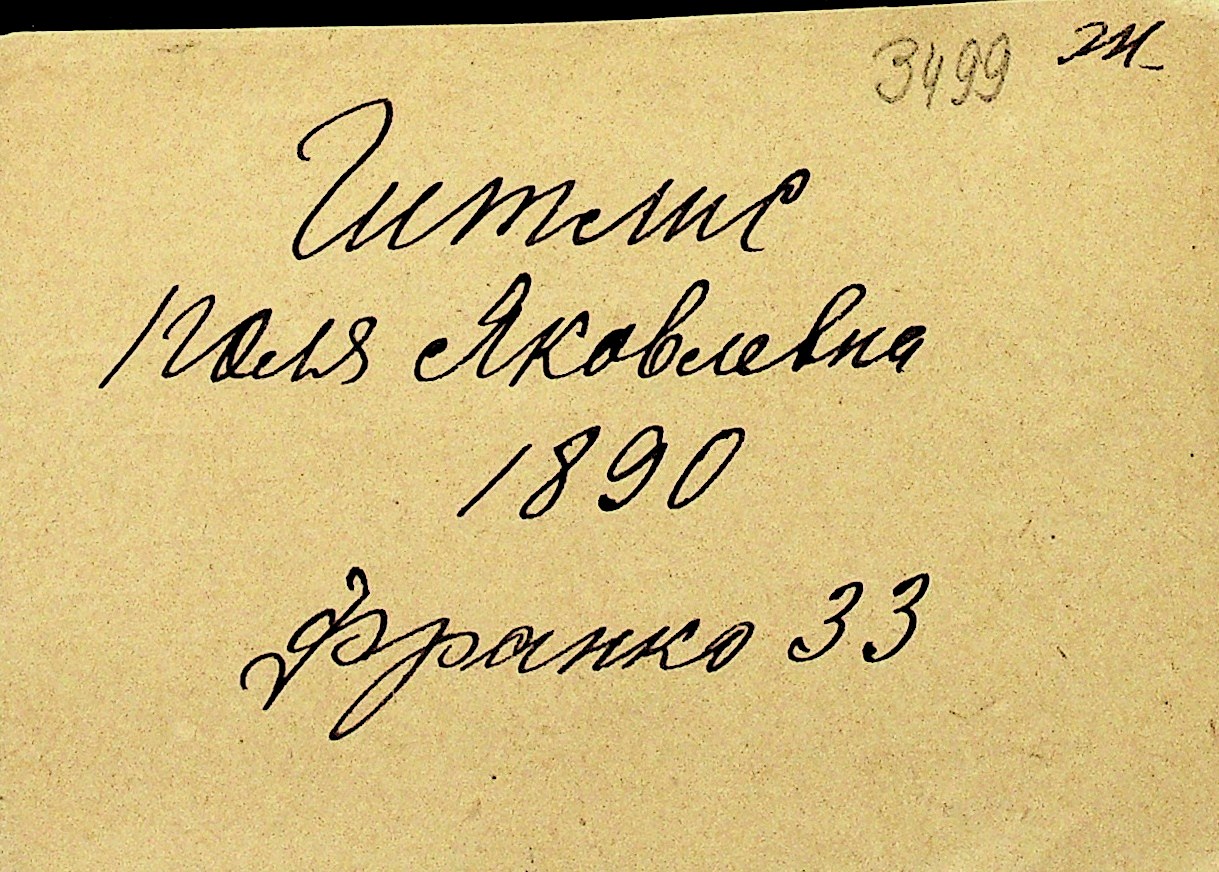 3499 ж
Гитлис
Поля Яковлевна
1890
Франко 33